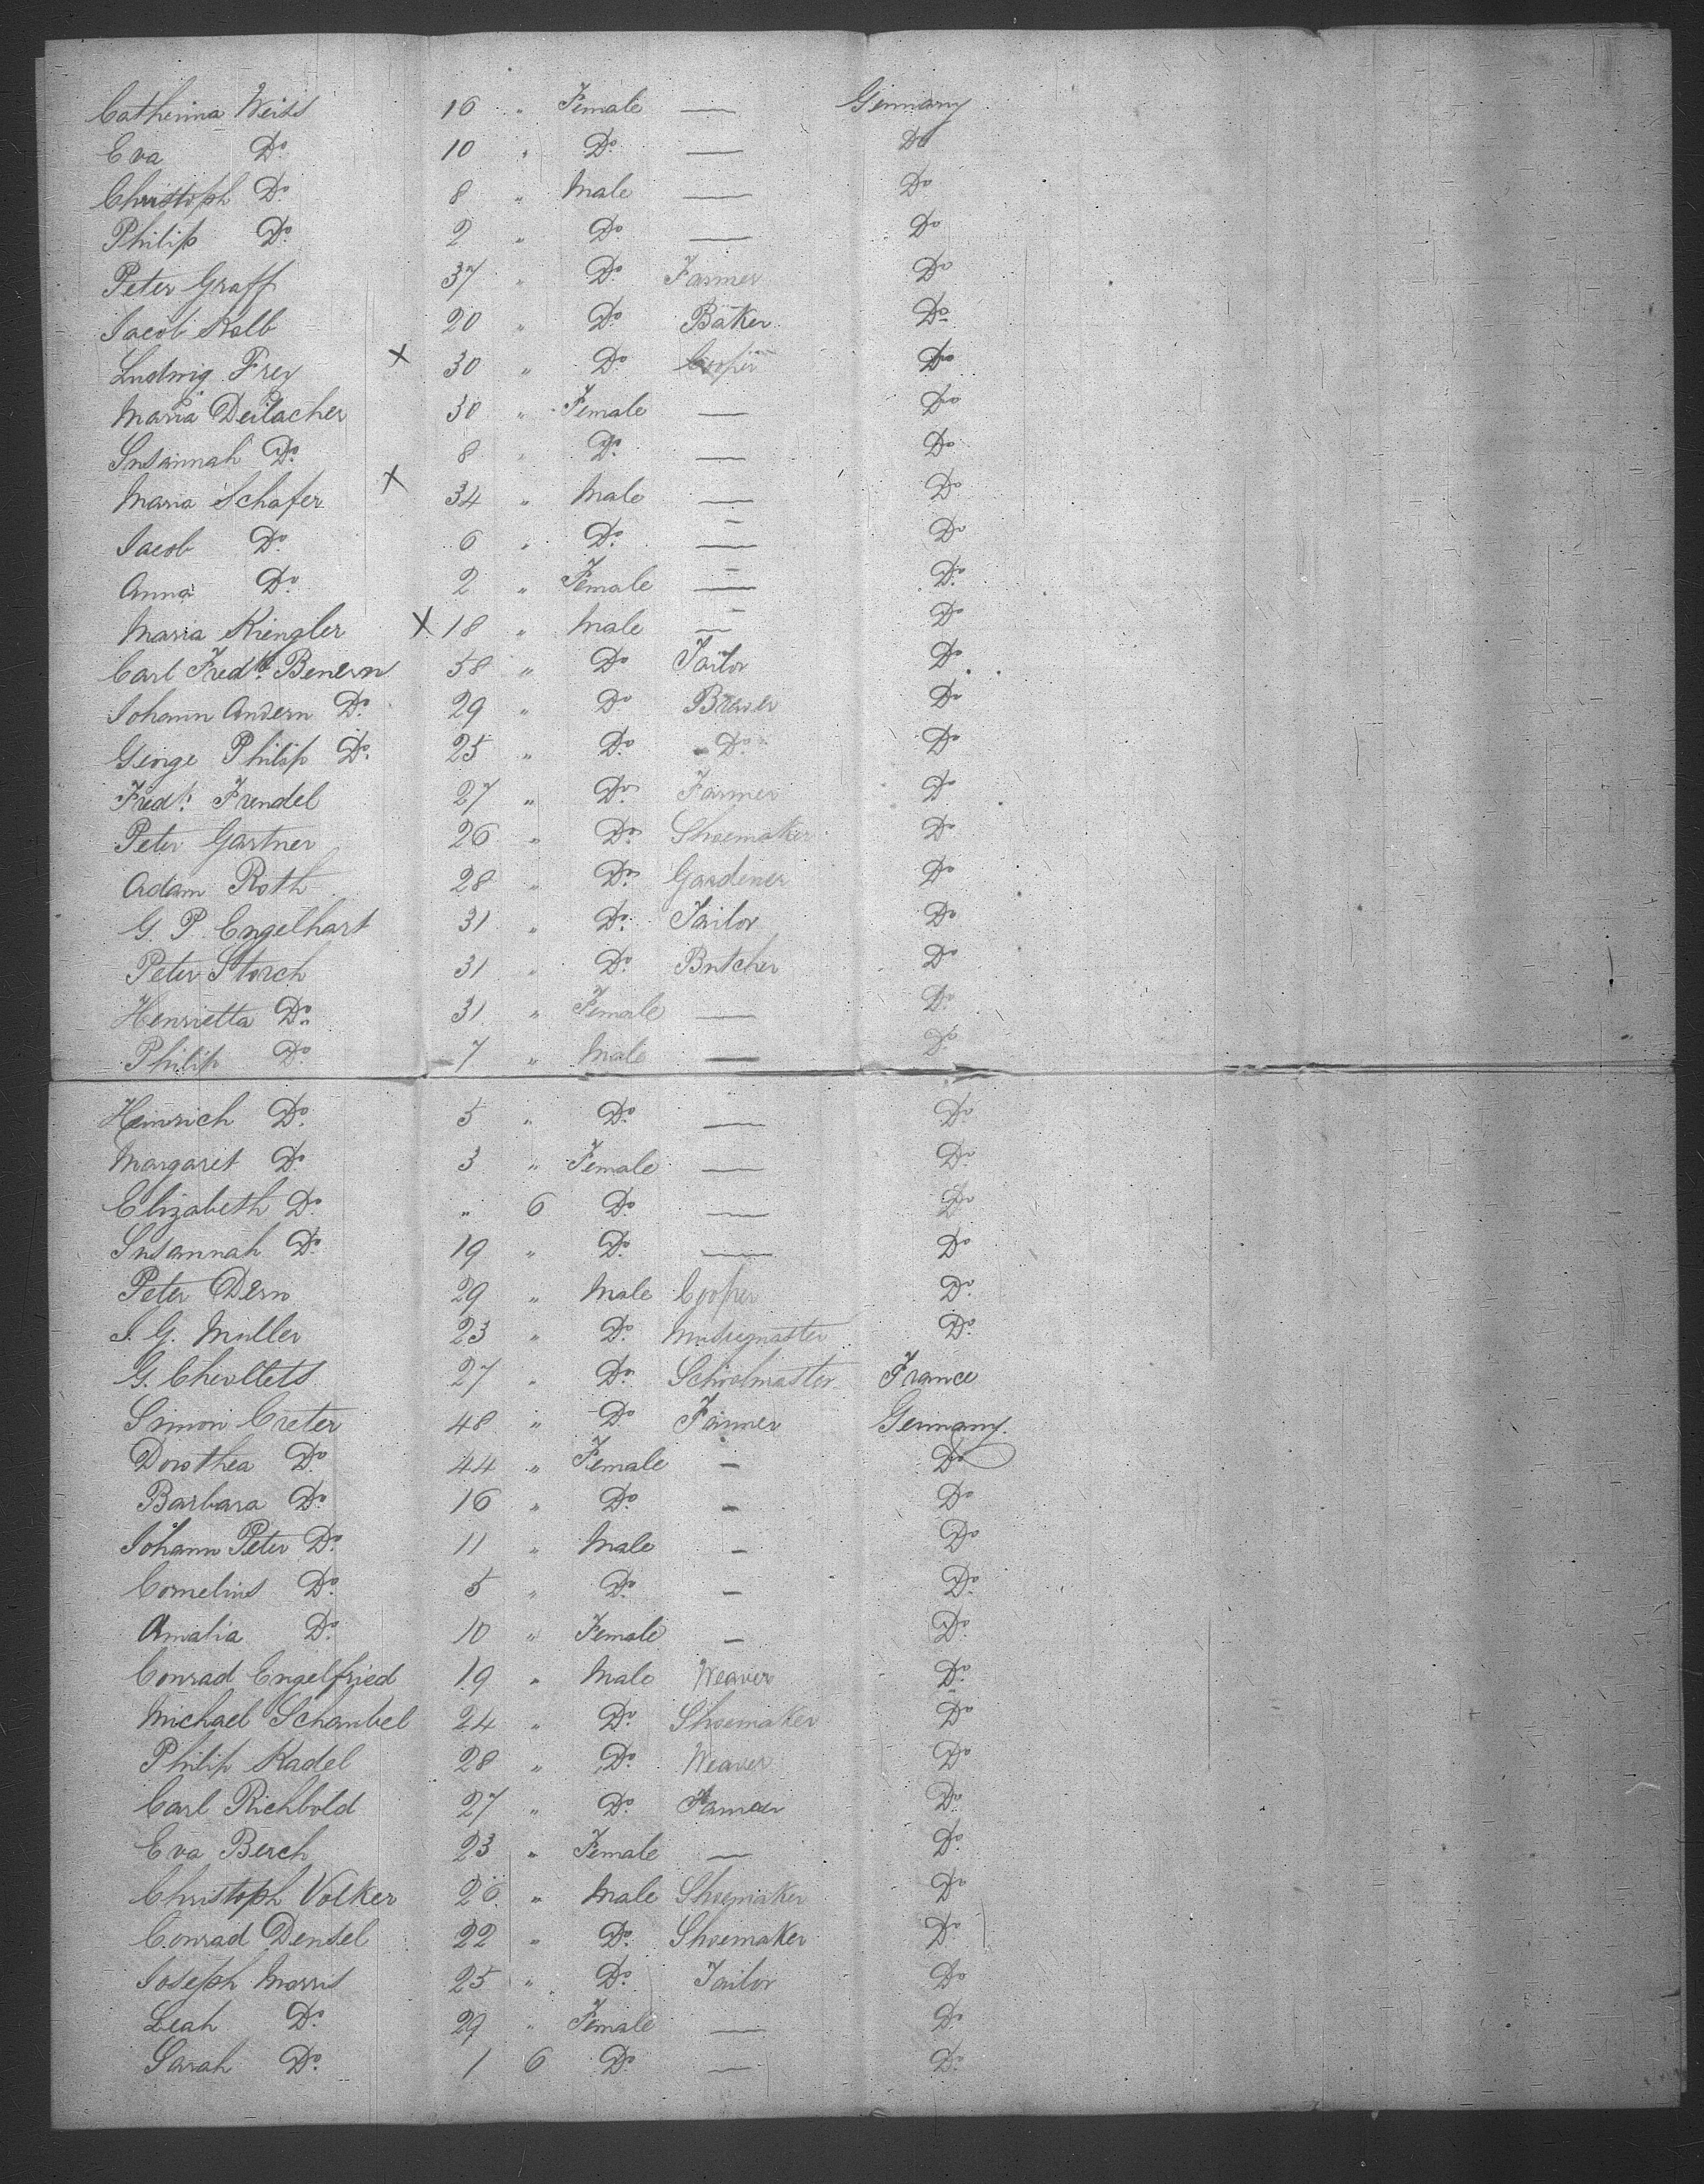 Catherina Weiss 16 " Female — Germany
Eva Do. 10 " Do. — Do
Christoph Do. 8 " Male — Do
Philip Do. 2 " Do. — Do
Peter Graff 37 " Do. Farmer Do
Jacob Kolb 20 " Do. Baker Do
Ludwig Frey X 30 " Do. Cooper Do
Maria Deilacher 30 " Female — Do
Susannah Do. 8 " Do. — Do
Maria Schafer X 34 " Male — Do
Jacob Do. 6 " Do. — Do
Anna Do. 2 " Female — Do.
Maria Kiengler X 18 " Male — Do
Carl Fredk. Benern 58 " Do Tailor Do.
Johann Andern Do. 29 " Do Brewer Do
George Philip Do. 25 " Do. Do. Do
Fredk. Frendel 27 " Do. Farmer Do
Peter Gartner 26 " Do. Shoemaker Do
Adam Roth 28 " Do. Gardener Do
G. P. Engelhart 31 " Do. Tailor Do
Peter Storch 31 " Do. Butcher Do
Henrietta Do. 31 " Female — Do
Philip Do. 7 " Male — Do
Heinrich Do. 5 " Do. — Do
Margaret Do. 3 " Female — Do.
Elizabeth Do. " 6 Do. — Do
Susannah Do. 19 " Do. — Do
Peter Dern 29 " Male Cooper Do.
J. G. Muller 23 " Do. Musicmaster Do.
G. 27 " Do. Schoolmaster France
Simon Creter 48 " Do Farmer Germany.
Dorothea Do. 44 " Female — Do
Barbara Do. 16 " Do. — Do
Johann Peter Do. 11 " Male — Do
Cornelius Do. 5 " Do. — Do.
Amalia Do. 10 " Female — Do.
Conrad Engelfried 19 " Male Weaver Do.
Michael Schanbel 24 " Do. Shoemaker Do
Philip Kadel 28 " Do. Weaver Do
Carl Richbold 27 " Do. Farmer Do.
Eva Berch 23 " Female — Do.
Christoph Volker 26 " Male Shoemaker Do
Conrad Densel 22 " Do. Shoemaker Do
Joseph Morris 25 " Do. Tailor Do
Leah Do. 29 " Female — Do.
Sarah Do. 1 6 Do. — Do.